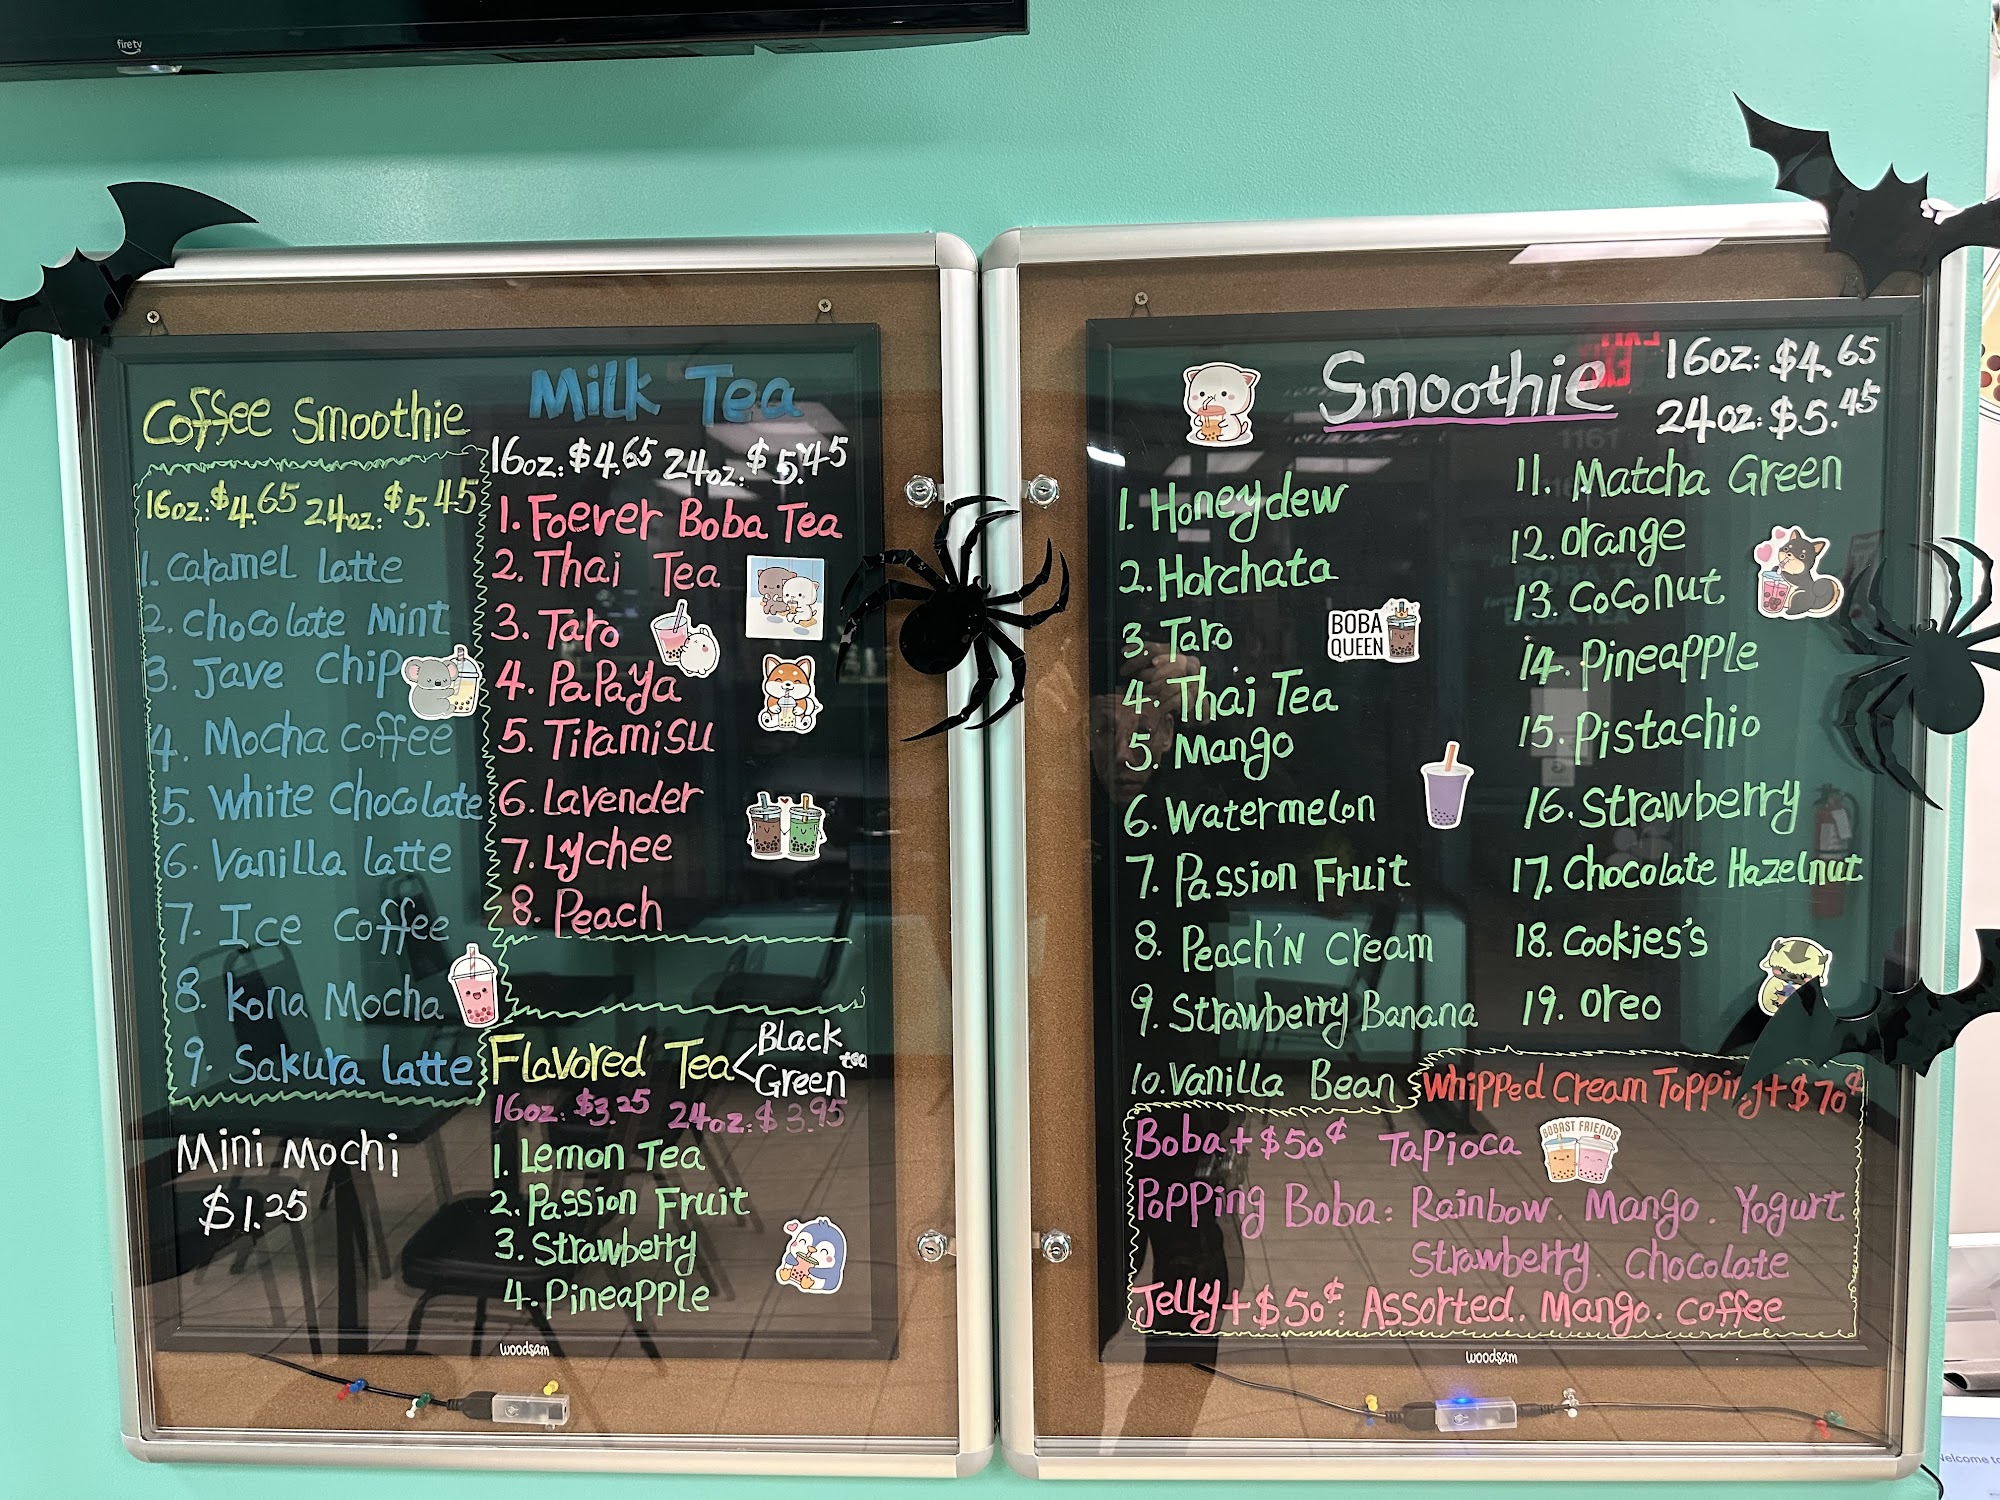 firetv
Coffee Smoothie
16oz: $4.65 24oz: $5.45
1. Caramel Latte
2. Chocolate Mint
3. Jave Chip
4. Mocha Coffee
5. White Chocolate
6. Vanilla latte
7. Ice Coffee
8. Kona Mocha
9. Sakura Latte
Mini Mochi
$1.25
Milk Tea
16oz: $4.65 24oz: $5.45
1. Foever Boba Tea
2. Thai Tea
3. Taro
4. PaPaYa
5. Tiramisu
6. Lavender
7. Lychee
8. Peach
Flavored Tea < Black Green tea
16oz: $3.25 24oz: $3.95
1. Lemon Tea
2. Passion Fruit
3. Strawberry
4. Pineapple
woodsam
Smoothie
16oz: $4.65
24oz: $5.45
1. Honeydew
2. Horchata
3. Taro
4. Thai Tea
5. Mango
6. Watermelon
7. Passion Fruit
8. Peach'N Cream
9. Strawberry Banana
10. Vanilla Bean
BOBA
QUEEN
11. Matcha Green
12. Orange
13. Coconut
14. Pineapple
15. Pistachio
16. Strawberry
17. Chocolate Hazelnut
18. Cookies's
19. Oreo
Whipped Cream Topping + $70¢
Boba + $50¢ Tapioca
BOBAST FRIENDS
Popping Boba: Rainbow. Mango. Yogurt
Strawberry. Chocolate
Jelly + $50¢: Assorted. Mango. Coffee
woodsam